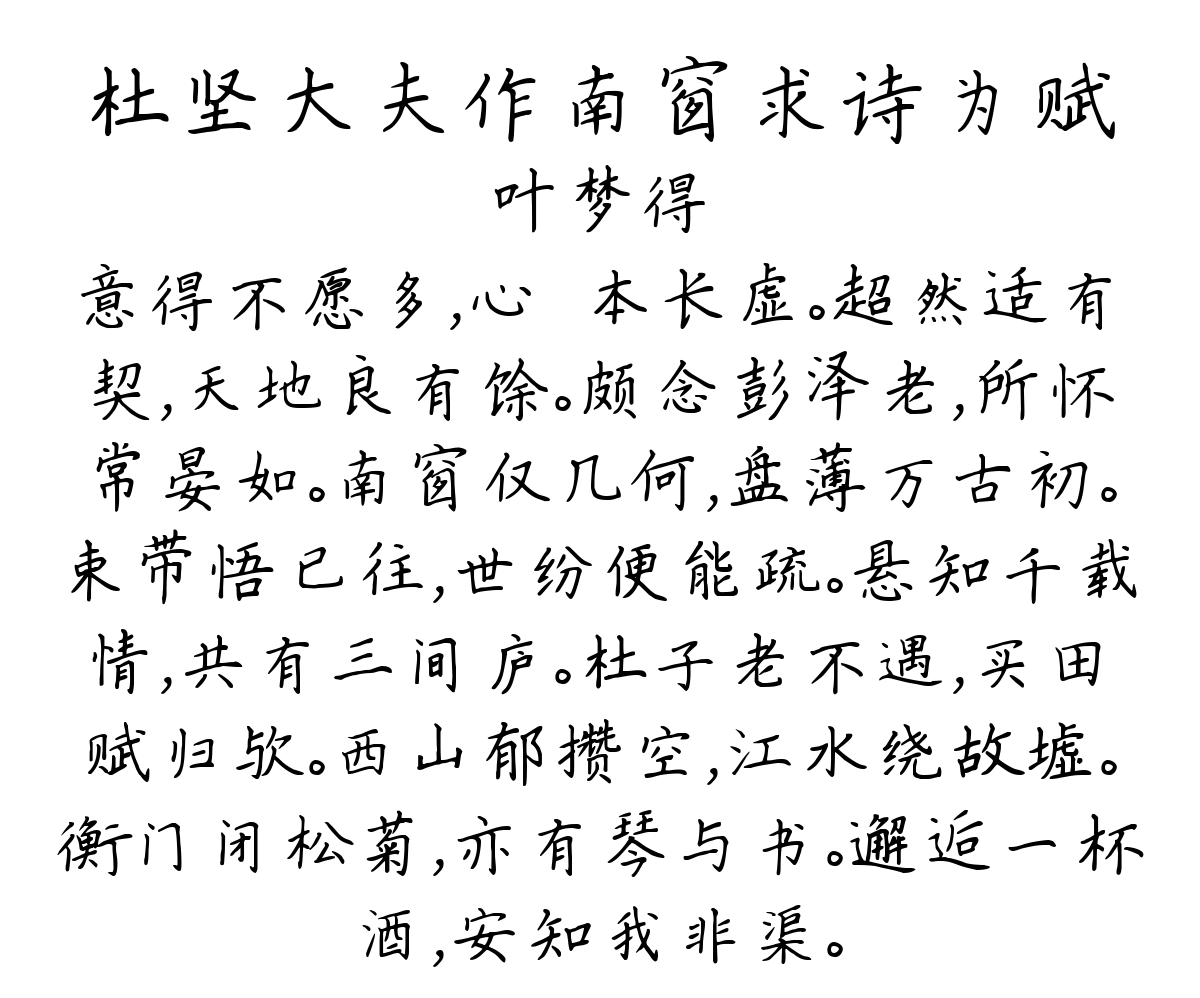 杜坚大夫作南窗求诗为赋
叶梦得
意得不愿多,心 本长虚。超然适有
契,天地良有馀。颇念彭泽老,所怀
常晏如。南窗仅几何,盘薄万古初。
束带悟已往,世纷便能疏。悬知千载
情,共有三间庐。杜子老不遇,买田
赋归欤。西山郁攒空,江水绕故墟。
衡门闭松菊,亦有琴与书。邂逅一杯
酒,安知我非渠。